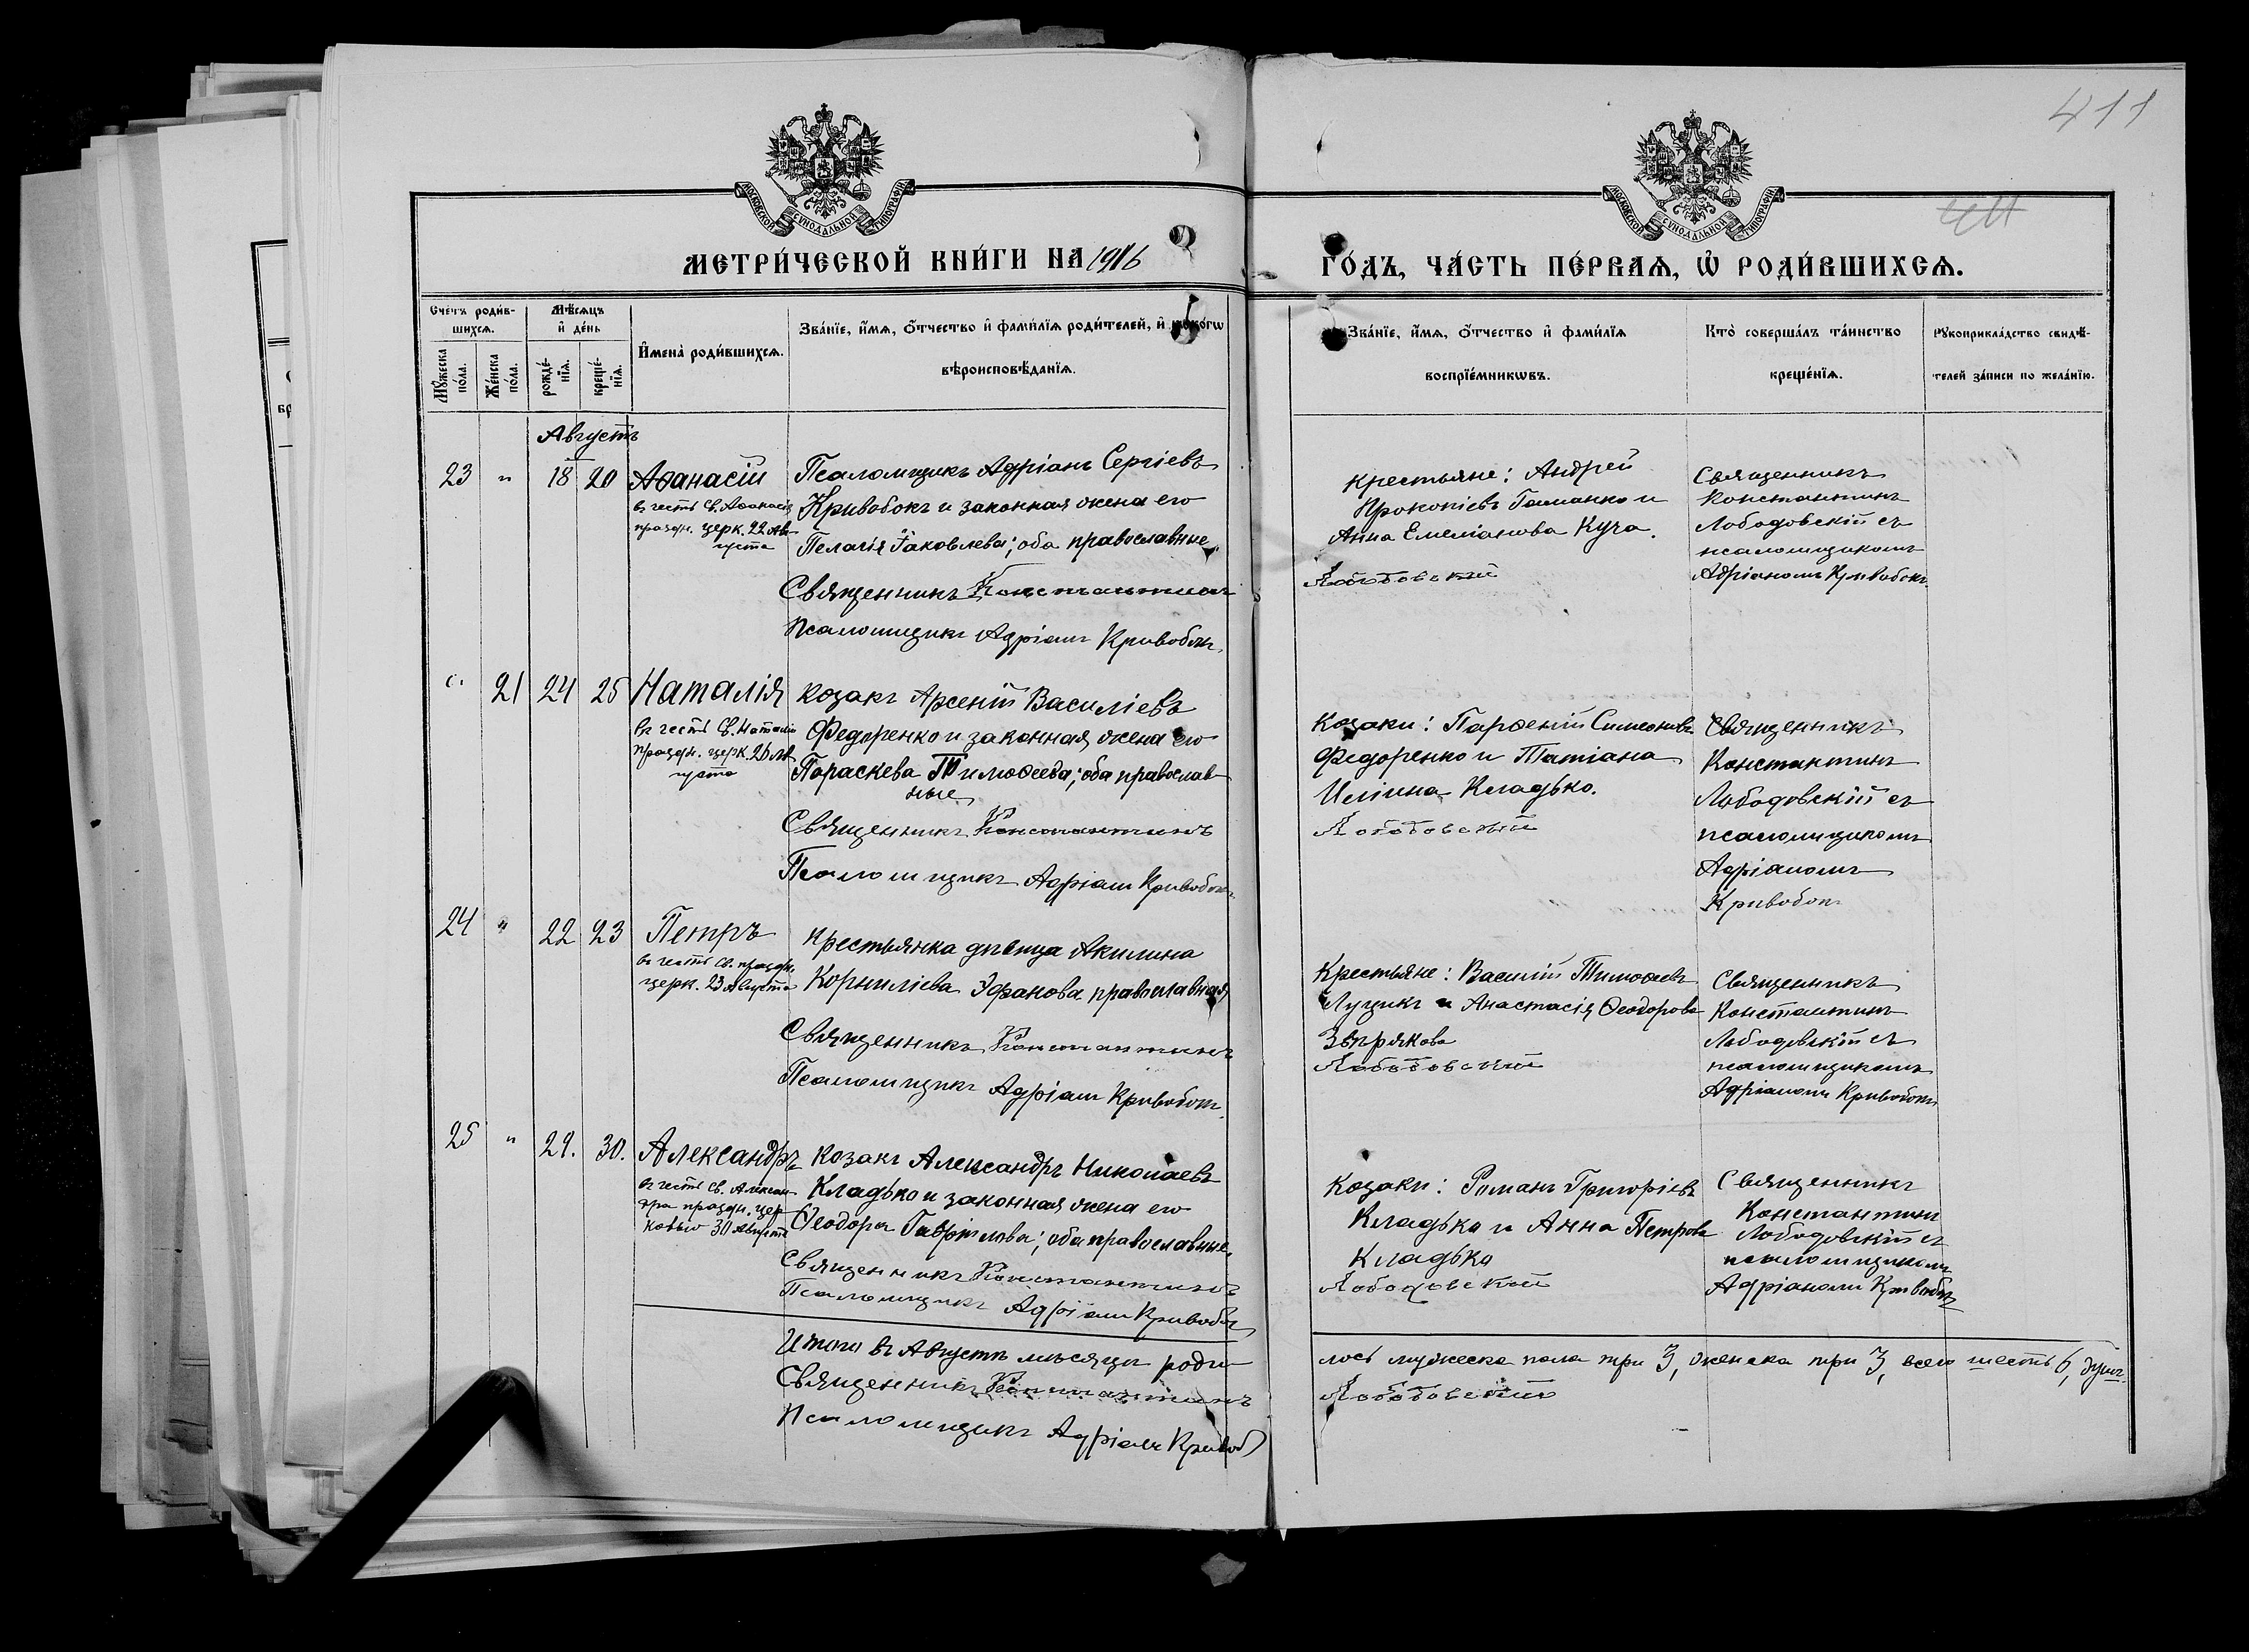 411
МОСКОВСКОЙ СѴНОДАЛЬНОЙ ТИПОГРАФІИ
МОСКОВСКОЙ СѴНОДАЛЬНОЙ ТИПОГРАФІИ
411
МЕТРИ́ЧЕСКОЙ КНИ́ГИ НА 1916
ГО́ДЪ, ЧА́СТЬ ПЕ́РВАѦ, Ѡ҆ РОДИ́ВШИХСѦ.
Сче́тъ роди́в-
шихсѧ.
Мѣ́сѧцъ
и҆ де́нь
Мꙋ́жеска по́ла.
Же́нска по́ла.
рожде́-нїѧ.
креще́-нїѧ.
И҆мена̀ роди́вшихсѧ.
Зва́нїе, и҆́мѧ, ѻ҆́тчество и҆ фами́лїѧ роди́телей, и҆ како́гѡ
вѣроисповѣ́данїѧ.
Зва́нїе, и҆́мѧ, ѻ҆́тчество и҆ фами́лїѧ
воспрїе́мникѡвъ.
Кто̀ соверша́лъ та́инство
креще́нїѧ.
Рꙋкоприкла́дство свидѣ́-
телей за́писи по жела́нїю.
Августъ
23 " 18 20 Аѳанасій
въ честь Св. Аѳанасія
праздн. церк. 22 Ав-
густа
Псаломщикъ Адріанъ Сергіевъ
Кривобокъ и законная жена его
Пелагія Іаковлева; оба православные
Священникъ Константинъ
Псаломщикъ Адріанъ Кривобокъ
крестьяне: Андрей
Прокопіевъ и
Анна Емеліанова Куча.
Лободовскій
Священникъ
Константинъ
Лободовскій съ
псаломщикомъ
Адріаномъ Кривобокъ.
" 21 24 25 Наталія
въ честь Св. Наталіи
праздн. церк. 26 Ав-
густа
козакъ Арсеній Василіевъ
Федоренко и законная жена его
Параскева Тимоѳеева; оба православ-
ные
Священникъ Константинъ
Псаломщикъ Адріанъ Кривобокъ
Козаки: Парѳеній Симеоновъ
Федоренко и Татіана
Иліина Кладько.
Лободовскій
Священникъ
Константинъ
Лободовскій съ
псаломщикомъ
Адріаномъ
Кривобокъ
24 " 22 23 Петръ
въ честь св. праздн.
церк. 23 Августа
крестьянка дѣвица Акилина
Корниліева Эфанова православная
Священникъ Константинъ
Псаломщикъ Адріанъ Кривобокъ
Крестьяне: Василій Тимоѳеевъ
Луцикъ и Анастасія Ѳеодорова
Звѣрякова
Лободовскій
Священникъ
Константинъ
Лободовскій съ
псаломщикомъ
Адріаномъ Кривобокъ
25 " 29. 30. Александръ
въ честь св. Алексан-
дра праздн. цер-
ковью 30 Августа
козакъ Александръ Николаевъ
Кладько и законная жена его
Ѳеодора Гавріилова; оба православные.
Священникъ Константинъ
Псаломщикъ Адріанъ Кривобокъ
Козаки: Романъ Григоріевъ
Кладько и Анна Петрова
Кладько
Лободовскій
Священникъ
Константинъ
Лободовскій съ
псаломщикомъ
Адріаномъ Кривобокъ
Итого въ Августѣ мѣсяцѣ роди-
лось мужеска пола три 3, женска три 3, всего шесть 6, душъ.
Священникъ Константинъ
Лободовскій
Псаломщикъ Адріанъ Кривоб